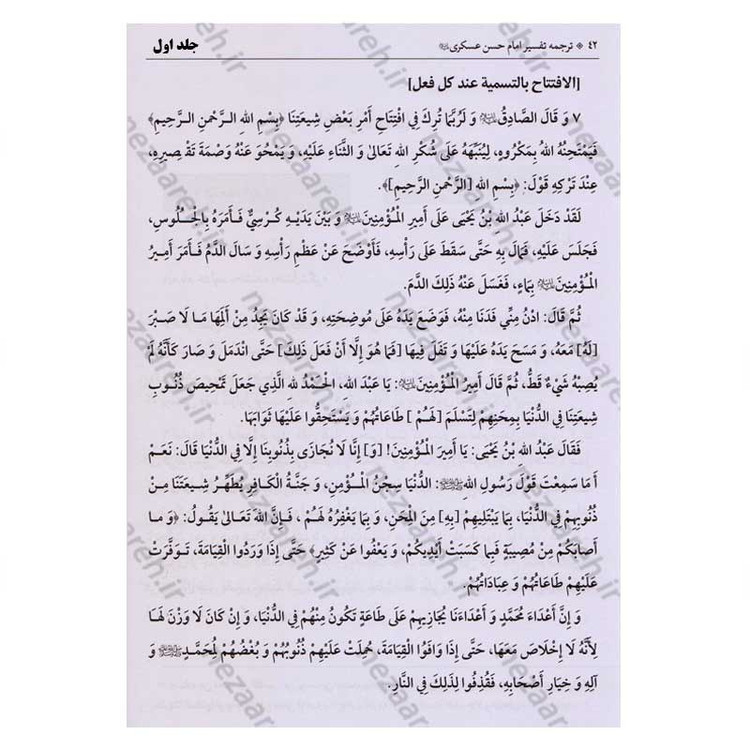 ۴۲ * ترجمه تفسیر امام حسن عسکری جلد اول
[الافتتاح بالتسمیة عند کل فعل]
۷ وَ قَالَ الصَّادِقُ وَ لَرُبَّمَا تُرِكَ فِي افْتِتَاحِ أَمْرِ بَعْضِ شِيعَتِنَا ﴿بِسْمِ اللهِ الرَّحْمنِ الرَّحِيمِ﴾
فَيَمْتَحِنُهُ اللهُ بِمَكْرُوهٍ، لِيُنَبِّهَهُ عَلَى شُكْرِ اللهِ تَعَالَى وَ الثَّنَاءِ عَلَيْهِ، وَ يَمْحُوَ عَنْهُ وَصْمَةَ تَقْصِيرِهِ،
عِنْدَ تَرْكِهِ قَوْلَ: ﴿بِسْمِ اللهِ [الرَّحْمنِ الرَّحِيمِ]﴾.
لَقَدْ دَخَلَ عَبْدُ اللهِ بْنُ يَحْيَى عَلَى أَمِيرِ الْمُؤْمِنِينَ وَ بَيْنَ يَدَيْهِ كُرْسِيٌّ فَأَمَرَهُ بِالْجُلُوسِ،
فَجَلَسَ عَلَيْهِ، فَمَالَ بِهِ حَتَّى سَقَطَ عَلَى رَأْسِهِ، فَأَوْضَحَ عَنْ عَظْمِ رَأْسِهِ وَ سَالَ الدَّمُ فَأَمَرَ أَمِيرُ
الْمُؤْمِنِينَ بِمَاءٍ، فَغَسَلَ عَنْهُ ذَلِكَ الدَّمَ.
ثُمَّ قَالَ: ادْنُ مِنِّي فَدَنَا مِنْهُ، فَوَضَعَ يَدَهُ عَلَى مُوضِحَتِهِ، وَ قَدْ كَانَ يَجِدُ مِنْ أَلَمِهَا مَا لَا صَبْرَ
[لَهُ] مَعَهُ، وَ مَسَحَ يَدَهُ عَلَيْهَا وَ تَفَلَ فِيهَا [فَمَا هُوَ إِلَّا أَنْ فَعَلَ ذَلِكَ] حَتَّى انْدَمَلَ وَ صَارَ كَأَنَّهُ لَمْ
يُصِبْهُ شَيْءٌ قَطُّ، ثُمَّ قَالَ أَمِيرُ الْمُؤْمِنِينَ: يَا عَبْدَ اللهِ، الْحَمْدُ لِلهِ الَّذِي جَعَلَ تَمْحِيصَ ذُنُوبِ
شِيعَتِنَا فِي الدُّنْيَا بِمِحَنِهِمْ لِتَسْلَمَ [لَهُمْ] طَاعَاتُهُمْ وَ يَسْتَحِقُّوا عَلَيْهَا ثَوَابَهَا.
فَقَالَ عَبْدُ اللهِ بْنُ يَحْيَى: يَا أَمِيرَ الْمُؤْمِنِينَ! [وَ] إِنَّا لَا نُجَازَى بِذُنُوبِنَا إِلَّا فِي الدُّنْيَا قَالَ: نَعَمْ
أَ مَا سَمِعْتَ قَوْلَ رَسُولِ اللهِ: الدُّنْيَا سِجْنُ الْمُؤْمِنِ، وَ جَنَّةُ الْكَافِرِ يُطَهِّرُ شِيعَتَنَا مِنْ
ذُنُوبِهِمْ فِي الدُّنْيَا، بِمَا يَبْتَلِيهِمْ [بِهِ] مِنَ الْمِحَنِ، وَ بِمَا يَغْفِرُهُ لَهُمْ، فَإِنَّ اللهَ تَعَالَى يَقُولُ: ﴿وَ ما
أَصابَكُمْ مِنْ مُصِيبَةٍ فَبِما كَسَبَتْ أَيْدِيكُمْ، وَ يَعْفُوا عَنْ كَثِيرٍ﴾ حَتَّى إِذَا وَرَدُوا الْقِيَامَةَ، تَوَفَّرَتْ
عَلَيْهِمْ طَاعَاتُهُمْ وَ عِبَادَاتُهُمْ.
وَ إِنَّ أَعْدَاءَ مُحَمَّدٍ وَ أَعْدَاءَنَا يُجَازِيهِمْ عَلَى طَاعَةٍ تَكُونُ مِنْهُمْ فِي الدُّنْيَا، وَ إِنْ كَانَ لَا وَزْنَ لَهَا
لِأَنَّهُ لَا إِخْلَاصَ مَعَهَا، حَتَّى إِذَا وَافَوُا الْقِيَامَةَ، حُمِلَتْ عَلَيْهِمْ ذُنُوبُهُمْ وَ بُغْضُهُمْ لِمُحَمَّدٍ وَ
آلِهِ وَ خِيَارِ أَصْحَابِهِ، فَقُذِفُوا لِذَلِكَ فِي النَّارِ.
nezaareh.ir